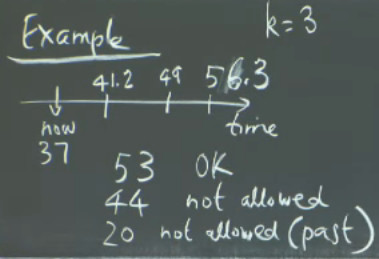 Example
k=3
41.2 49 56.3
now time
37
53 OK
44 not allowed
20 not allowed (past)